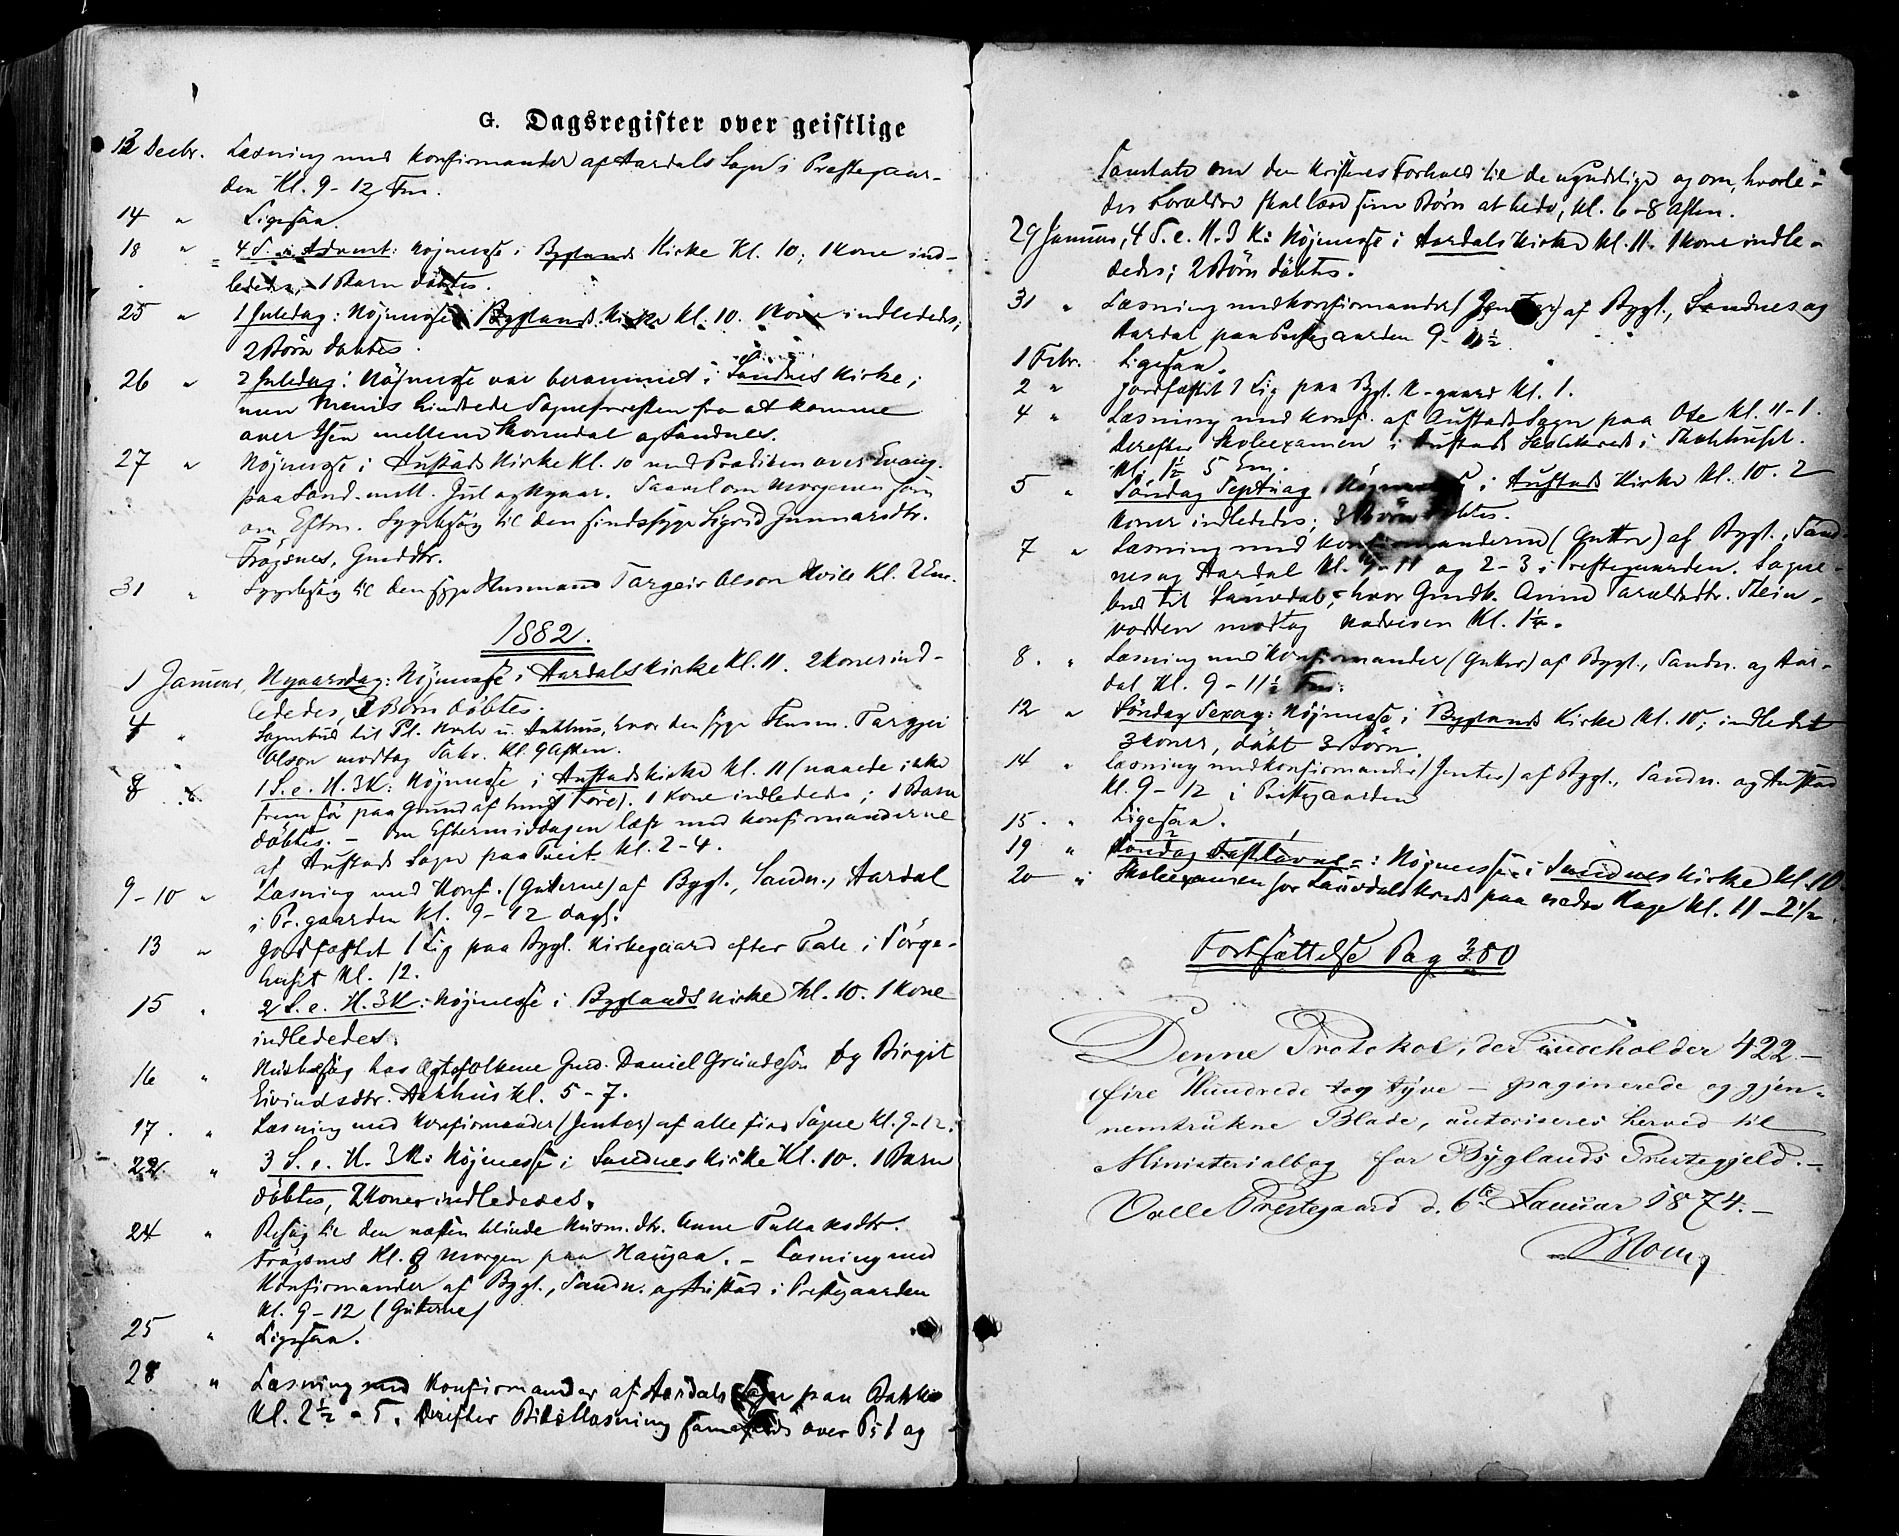 G. Dagsregister over geistlige
12 Decbr. Læsning med Konfirmander af Aardals Sogn i Præstegaar-
den Kl. 9-12 Fm.
14 " Ligesaa.
18 " 4 S. i Advent: Højmesse i Byglands Kirke Kl. 10; 1 Kone ind-
lededes, 1 Barn døbtes.
25 " 1 Juledag: Højmesse i Byglands Kirke Kl. 10. Kone indlededes;
2 Børn døbtes.
26 " 2 Juledag: Højmesse var berammet i Sandnes Kirke;
men Menis hindrede Sognepresten fra at komme
over Isen mellem Skomedal og Sandnes.
27 " Højmesse i Austads Kirke Kl. 10 med Prædiken over Evang.
paa Sønd. mell. Jul og Nyaar. Saavel om Morgenen som
om Eftm. Sygebesøg til den sindssyge Sigrid Gunnarsdtr.
Frøysnes, Gmddtr.
31 " Sygebesøg til den syge Husmand Targeir Olson Kvile Kl. 2 Em.
1882.
1 Januar, Nyaarsdag: Højmesse i Aardals Kirke Kl. 11. 2 Koner ind-
lededes, 3 Børn døbtes.
4 " Sognebud til Pl. Kvile u. Aakhus, hvor den syge Husm. Targjei
Olson modtog Sakr. Kl. 9 Aften.
8 " 1 S. e. H. 3 K: Højmesse i Austads Kirke Kl. 11 (naaede ikke
frem før paa Grund af tungt Føre). 1 Kone indlededes; 1 Barn
døbtes. - Om Eftermiddagen læst med Konfirmanderne
af Austads Sogn paa Tveit Kl. 2-4.
9-10 " Læsning med Konf. (Gutterne) af Bygl., Sandn., Aardal
i Pr.gaarden Kl. 9-12 dagl.
13 " Jordfæstet 1 Lig paa Bygl. Kirkegaard efter Tale i Sørge-
huset Kl. 12.
15 " 2 S. e. H. 3 K: Højmesse i Byglands Kirke Kl. 10. 1 Kone
indlededes.
16 " Husbesøg hos Ægtefolkene Gmd. Daniel Grundeson og Birgit
Eivindsdtr. Aakhus Kl. 5-7.
17. " Læsning med Konfirmander (Jenter) af alle fire Sogne Kl. 9-12.
22. " 3 S. e. H. 3 K: Højmesse i Sandnes Kirke Kl. 10. 1 Barn
døbtes, 2 Koner indlededes.
24 " Besøg til den næsten blinde Husm.dtr. Anne Tallaksdtr.
Frøysnes Kl. 8 Morgen paa Haugaa. - Læsning med
Konfirmander af Bygl., Sandn. og Austad i Prestegaarden
Kl. 9-12 (Gutterne)
25 " Ligesaa.
28 " Læsning med Konfirmander af Aardals Sogn paa Bakke
Kl. 2½ - 5. Derefter Bibellæsning sammesteds over Ps 1 og
Samtale om den Kristnes Forhold til de ugudelige og om, hvorle-
des Forældre skal lære sine Børn at bede, Kl. 6-8 Aften.
29 Januar, 4 S. e. H. 3 K: Højmesse i Aardals Kirke Kl. 11. 1 Kone indle-
dedes; 2 Børn døbtes.
31 " Læsning med Konfirmander (Jenter) af Bygl., Sandnes og
Aardal paa Prestegaarden 9-11½
1 Febr. Ligesaa.
2 " Jordfæstet 1 Lig paa Bygl. K-gaard Kl. 1.
4 " Læsning med Konf. af Austads Sogn paa Ose Kl. 11-1.
Derefter Skoleexamen i Austads Skolekreds i Skolehuset.
Kl. 1½ 5 Em.
5 " Søndag Septuag. Højmesse i Austads Kirke Kl. 10. 2
Koner indlededes; 3 Børn døbtes.
7 " Læsning med Konfirmanderne (Gutter) af Bygl., Sand-
nes og Aardal Kl. 9-11 og 2-3 i Prestegaarden. Sogne-
bud til Lauvdal, hvor Gmdk. Anne Taraldsdtr. Stein-
vodden modtog Nadveren Kl. 1¼.
8. " Læsning med Konfirmander (Gutter) af Bygl., Sandn. og Aar-
dal Kl. 9-11½ Fm.
12 " Søndag Sexag: Højmesse i Byglands Kirke Kl. 10; indledet
3 Koner, døbt 3 Børn.
14 " Læsning med Konfirmander (Jenter) af Bygl., Sandn. og Austad
Kl. 9-12 i Prestegaarden
15. " Ligesaa.
19 " Søndag Fastelavns: Højmesse i Sandnes Kirke Kl. 10
20 " Skoleexamen for Lauvdals Kreds paa nedre Hage Kl. 11-2½.
Fortsættelse Pag 380
Denne Protokol, der indeholder 422 -
fire Hundrede to og tyve - paginerede og gjen-
nemtrukne Blade, autoriseres herved til
Ministerialbog for Byglands Prestegjeld. -
Valle Prestegaard d. 6te Januar 1874. -
Blom